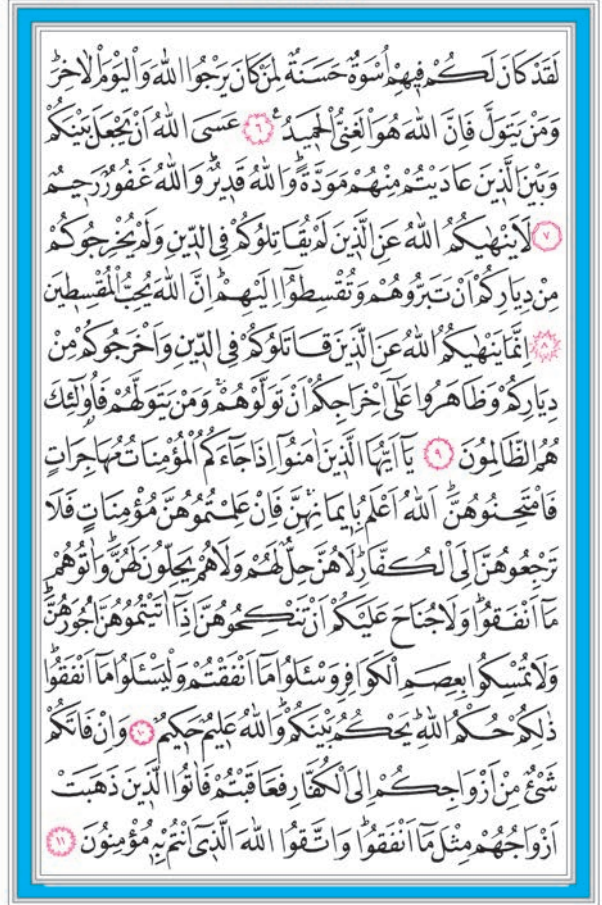 لَقَدْ كَانَ لَكُمْ فِيهِمْ اُسْوَةٌ حَسَنَةٌ لِمَنْ كَانَ يَرْجُوا اللّٰهَ وَالْيَوْمَ الْاٰخِرَۜ
وَمَنْ يَتَوَلَّ فَاِنَّ اللّٰهَ هُوَ الْغَنِيُّ الْحَمِيدُ ࣖ ﴿٦﴾ عَسَى اللّٰهُ اَنْ يَجْعَلَ بَيْنَكُمْ
وَبَيْنَ الَّذِينَ عَادَيْتُمْ مِنْهُمْ مَوَدَّةًۜ وَاللّٰهُ قَدِيرٌۜ وَاللّٰهُ غَفُورٌ رَحِيمٌ
﴿٧﴾ لَا يَنْهٰيكُمُ اللّٰهُ عَنِ الَّذِينَ لَمْ يُقَاتِلُوكُمْ فِي الدِّينِ وَلَمْ يُخْرِجُوكُمْ
مِنْ دِيَارِكُمْ اَنْ تَبَرُّوهُمْ وَتُقْسِطُٓوا اِلَيْهِمْۜ اِنَّ اللّٰهَ يُحِبُّ الْمُقْسِطِينَ
﴿٨﴾ اِنَّمَا يَنْهٰيكُمُ اللّٰهُ عَنِ الَّذِينَ قَاتَلُوكُمْ فِي الدِّينِ وَاَخْرَجُوكُمْ مِنْ
دِيَارِكُمْ وَظَاهَرُوا عَلٰٓى اِخْرَاجِكُمْ اَنْ تَوَلَّوْهُمْۚ وَمَنْ يَتَوَلَّهُمْ فَاُو۬لٰٓئِكَ
هُمُ الظَّالِمُونَ ﴿٩﴾ يَٓا اَيُّهَا الَّذِينَ اٰمَنُٓوا اِذَا جَٓاءَكُمُ الْمُؤْمِنَاتُ مُهَاجِرَاتٍ
فَامْتَحِنُوهُنَّۜ اَللّٰهُ اَعْلَمُ بِا۪يمَانِهِنَّۚ فَاِنْ عَلِمْتُمُوهُنَّ مُؤْمِنَاتٍ فَلَا
تَرْجِعُوهُنَّ اِلَى الْكُفَّارِۜ لَا هُنَّ حِلٌّ لَهُمْ وَلَا هُمْ يَحِلُّونَ لَهُنَّۜ وَاٰتُوهُمْ
مَٓا اَنْفَقُواۜ وَلَا جُنَاحَ عَلَيْكُمْ اَنْ تَنْكِحُوهُنَّ اِذَٓا اٰتَيْتُمُوهُنَّ اُجُورَهُنَّۜ
وَلَا تُمْسِكُوا بِعِصَمِ الْكَوَافِرِ وَسْـَٔلُوا مَٓا اَنْفَقْتُمْ وَلْيَسْـَٔلُوا مَٓا اَنْفَقُواۜ
ذٰلِكُمْ حُكْمُ اللّٰهِۜ يَحْكُمُ بَيْنَكُمْۜ وَاللّٰهُ عَلِيمٌ حَكِيمٌ ﴿١٠﴾ وَاِنْ فَاتَكُمْ
شَيْءٌ مِنْ اَزْوَاجِكُمْ اِلَى الْكُفَّارِ فَعَاقَبْتُمْ فَاٰتُوا الَّذِينَ ذَهَبَتْ
اَزْوَاجُهُمْ مِثْلَ مَٓا اَنْفَقُواۜ وَاتَّقُوا اللّٰهَ الَّذِٓي اَنْتُمْ بِهِ مُؤْمِنُونَ ﴿١١﴾